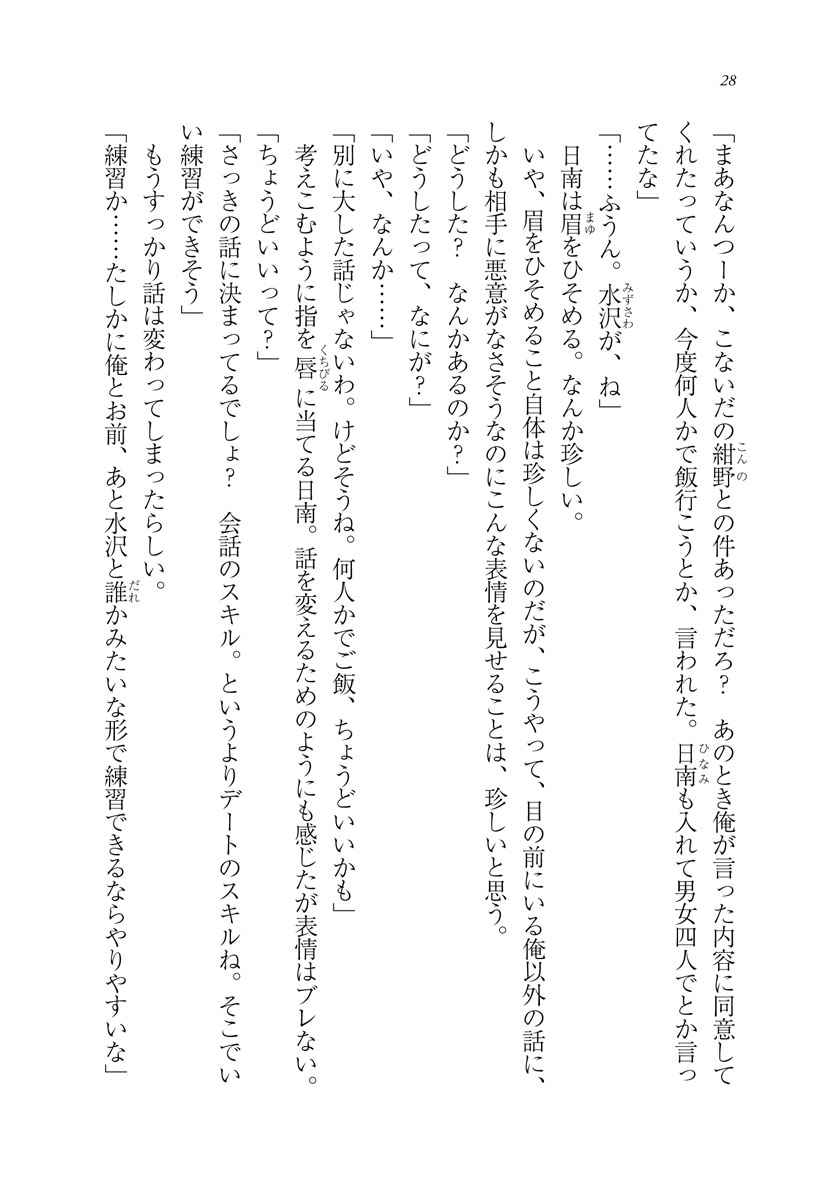 28
「まあなんつーか、こないだの紺野との件あっただろ？　あのとき俺が言った内容に同意して
くれたっていうか、今度何人かで飯行こうとか、言われた。日南も入れて男女四人でとか言っ
てたな」
「……ふうん。水沢が、ね」
　日南は眉をひそめる。なんか珍しい。
　いや、眉をひそめること自体は珍しくないのだが、こうやって、目の前にいる俺以外の話に、
しかも相手に悪意がなさそうなのにこんな表情を見せることは、珍しいと思う。
「どうした？　なんかあるのか？」
「どうしたって、なにが？」
「いや、なんか……」
「別に大した話じゃないわ。けどそうね。何人かでご飯、ちょうどいいかも」
　考えこむように指を唇に当てる日南。話を変えるためのようにも感じたが表情はブレない。
「ちょうどいいって？」
「さっきの話に決まってるでしょ？　会話のスキル。というよりデートのスキルね。そこでい
い練習ができそう」
　もうすっかり話は変わってしまったらしい。
「練習か……たしかに俺とお前、あと水沢と誰かみたいな形で練習できるならやりやすいな」